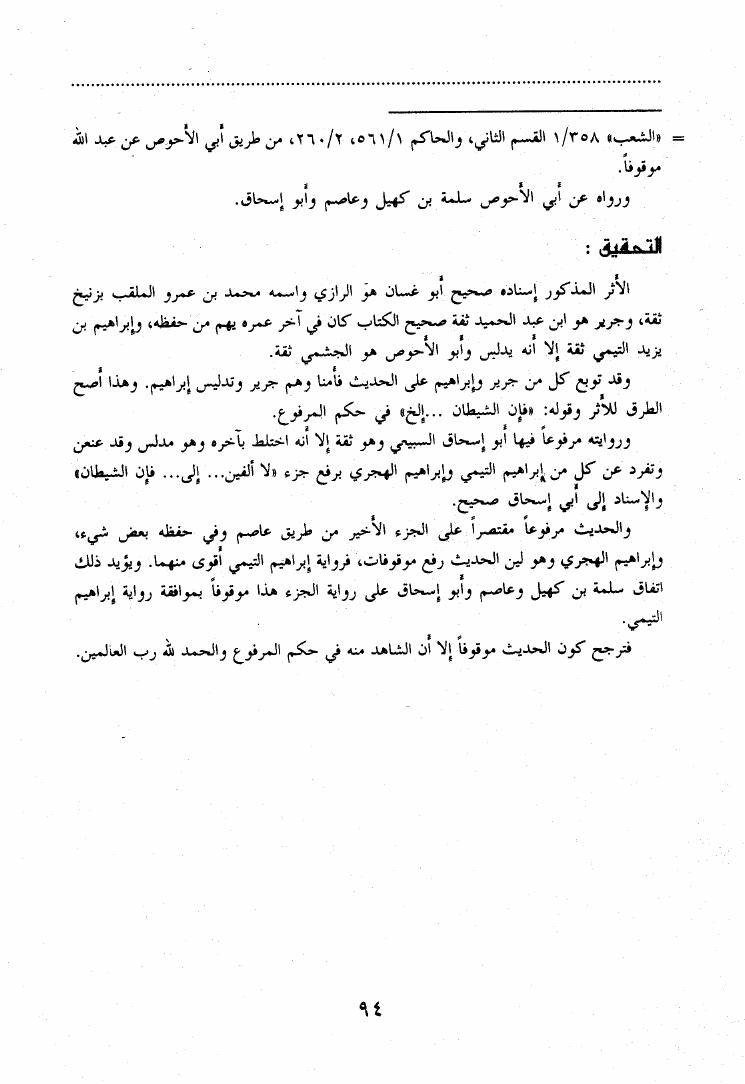 = «الشعب» ٣٥٨/١ القسم الثاني، والحاكم ٥٦١/١، ٢٦٠/٢، من طريق أبي الأحوص عن عبد الله
موقوفاً.
ورواه عن أبي الأحوص سلمة بن كهيل وعاصم وأبو إسحاق.
التحقيق :
الأثر المذكور إسناده صحيح أبو غسان هو الرازي واسمه محمد بن عمرو الملقب بزنيخ
ثقة، وجرير هو ابن عبد الحميد ثقة صحيح الكتاب كان في آخر عمره يهم من حفظه، وإبراهيم بن
يزيد التيمي ثقة إلا أنه يدلس وأبو الأحوص هو الجشمي ثقة.
وقد توبع كل من جرير وإبراهيم على الحديث فأمنا وهم جرير وتدليس إبراهيم. وهذا أصح
الطرق للأثر وقوله: «فإن الشيطان ...إلخ» في حكم المرفوع.
وروايته مرفوعاً فيها أبو إسحاق السبيعي وهو ثقة إلا أنه اختلط بآخره وهو مدلس وقد عنعن
وتفرد عن كل من إبراهيم التيمي وإبراهيم الهجري برفع جزء «لا ألفين... إلى... فإن الشيطان»
والإسناد إلى أبي إسحاق صحيح.
والحديث مرفوعاً مقتصراً على الجزء الأخير من طريق عاصم وفي حفظه بعض شيء،
وإبراهيم الهجري وهو لين الحديث رفع موقوفات، فرواية إبراهيم التيمي أقوى منهما. ويؤيد ذلك
اتفاق سلمة بن كهيل وعاصم وأبو إسحاق على رواية الجزء هذا موقوفاً بموافقة رواية إبراهيم
التيمي.
فترجح كون الحديث موقوفاً إلا أن الشاهد منه في حكم المرفوع والحمد لله رب العالمين.
٩٤